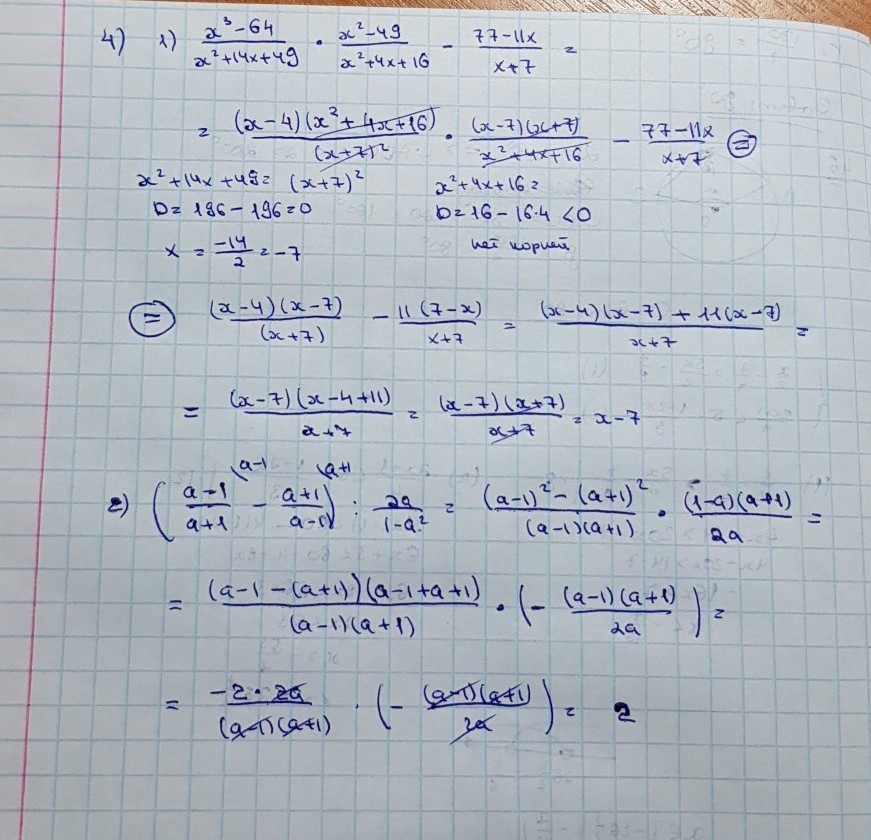 4) 1) (x³-64)/(x²+14x+49) · (x²-49)/(x²+4x+16) - (77-11x)/(x+7) =
= (x-4)(x²+4x+16)/(x+7)² · (x-7)(x+7)/(x²+4x+16) - (77-11x)/(x+7) =
x²+14x+49= (x+7)² x²+4x+16=
D= 196-196=0 D=16-16·4 <0
x = -14/2 = -7 нет корней
= (x-4)(x-7)/(x+7) - 11(7-x)/(x+7) = ((x-4)(x-7) + 11(x-7))/(x+7) =
= (x-7)(x-4+11)/(x+7) = (x-7)(x+7)/(x+7) = x-7
(a-1 (a+1
2) ((a-1)/(a+1) - (a+1)/(a-1)) : 2a/(1-a²) = ((a-1)²-(a+1)²)/((a-1)(a+1)) · (1-a)(a+1)/2a =
= (a-1-(a+1))(a-1+a+1)/((a-1)(a+1)) · (- (a-1)(a+1)/2a) =
= -2·2a/((a-1)(a+1)) · (- (a-1)(a+1)/2a) = 2